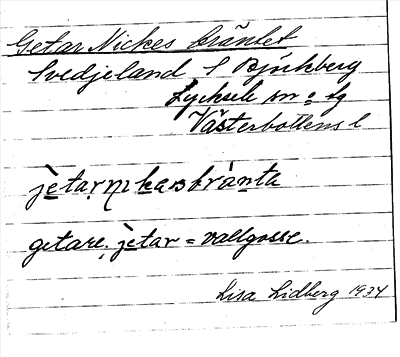 Getar Nickes bräntet
Svedjeland S Björkberg
Lycksele sn o lg
Västerbottens l
jètarṇɩkasbrànta
getare, jètar = vallgosse.
Lisa Lidberg 1934